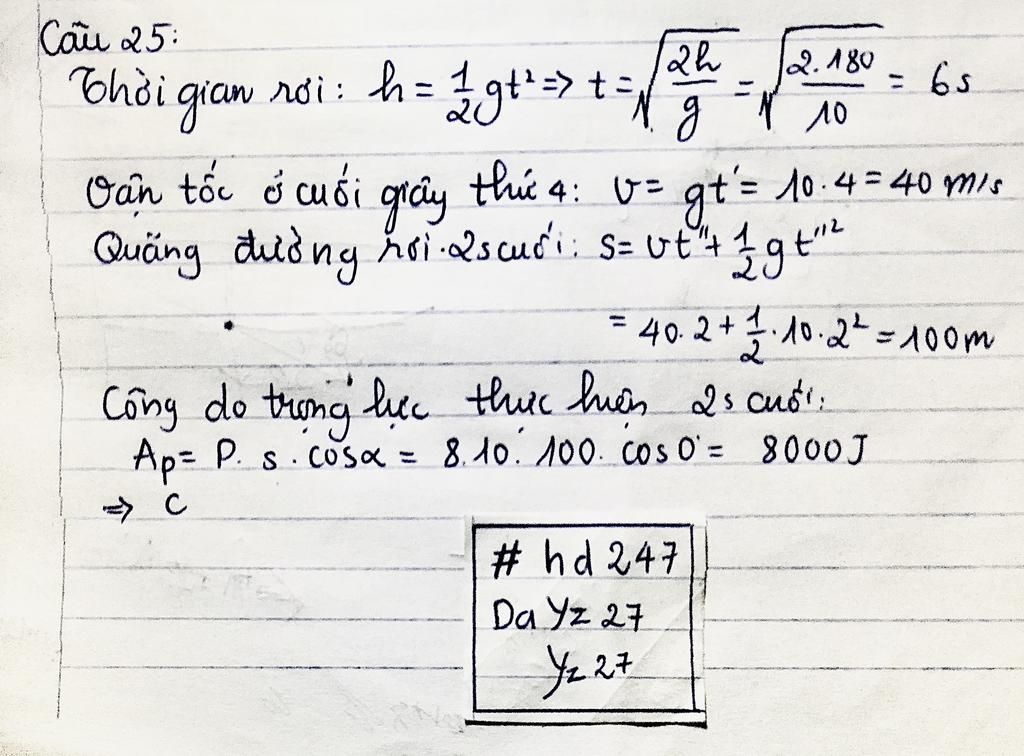 Câu 25:
Thời gian rơi: h = 1/2 gt² => t = √(2h/g) = √(2.180/10) = 6s
Vận tốc ở cuối giây thứ 4: v = gt' = 10.4 = 40 m/s
Quãng đường rơi 2s cuối: s = vt'' + 1/2 gt''²
= 40.2 + 1/2 .10.2² = 100m
Công do trọng lực thực hiện 2s cuối:
Ap = P. s. cosα = 8.10. 100. cos0° = 8000J
=> C
# hd 247
Da Yz 27
Yz 27